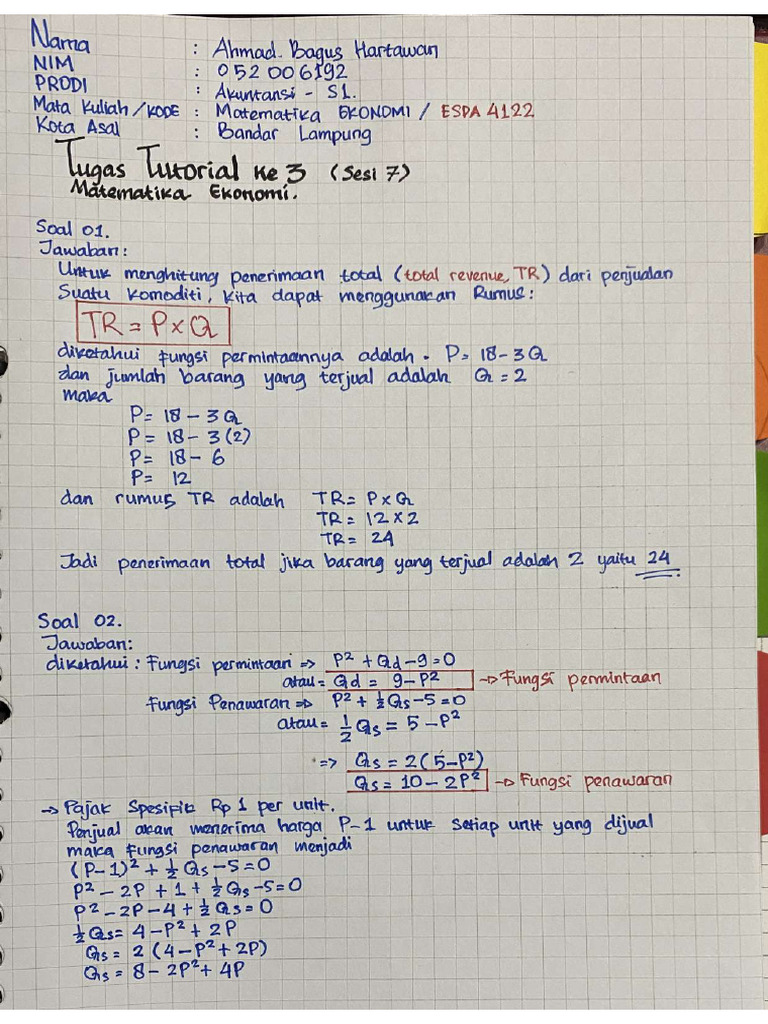 Nama : Ahmad. Bagus Hartawan
NIM : 052006192
PRODI : Akuntansi - S1.
Mata Kuliah / KODE : Matematika EKONOMI / ESPA 4122
Kota Asal : Bandar Lampung
Tugas Tutorial Ke 3 (Sesi 7)
Matematika Ekonomi.
Soal 01.
Jawaban:
Untuk menghitung penerimaan total (total revenue, TR) dari penjualan
Suatu Komoditi, Kita dapat menggunakan Rumus:
TR = P × Q
diketahui fungsi permintaannya adalah. P= 18-3Q
dan jumlah barang yang terjual adalah Q = 2
maka
P= 18 - 3Q
P= 18 - 3(2)
P= 18 - 6
P= 12
dan rumus TR adalah TR= P×Q
TR= 12×2
TR= 24
Jadi penerimaan total jika barang yang terjual adalah 2 yaitu 24
Soal 02.
Jawaban:
diketahui : Fungsi permintaan => P² + Qd - 9 = 0
atau= Qd = 9 - P² → Fungsi permintaan
Fungsi Penawaran => P² + ½Qs - 5 = 0
atau= ½Qs = 5 - P²
=> Qs = 2(5-P²)
Qs = 10 - 2P² → Fungsi penawaran
→ Pajak Spesifik Rp 1 per unit.
Penjual akan menerima harga P-1 untuk setiap unit yang dijual
maka fungsi penawaran menjadi
(P-1)² + ½Qs - 5 = 0
P² - 2P + 1 + ½Qs - 5 = 0
P² - 2P - 4 + ½Qs = 0
½Qs = 4 - P² + 2P
Qs = 2 (4 - P² + 2P)
Qs = 8 - 2P² + 4P